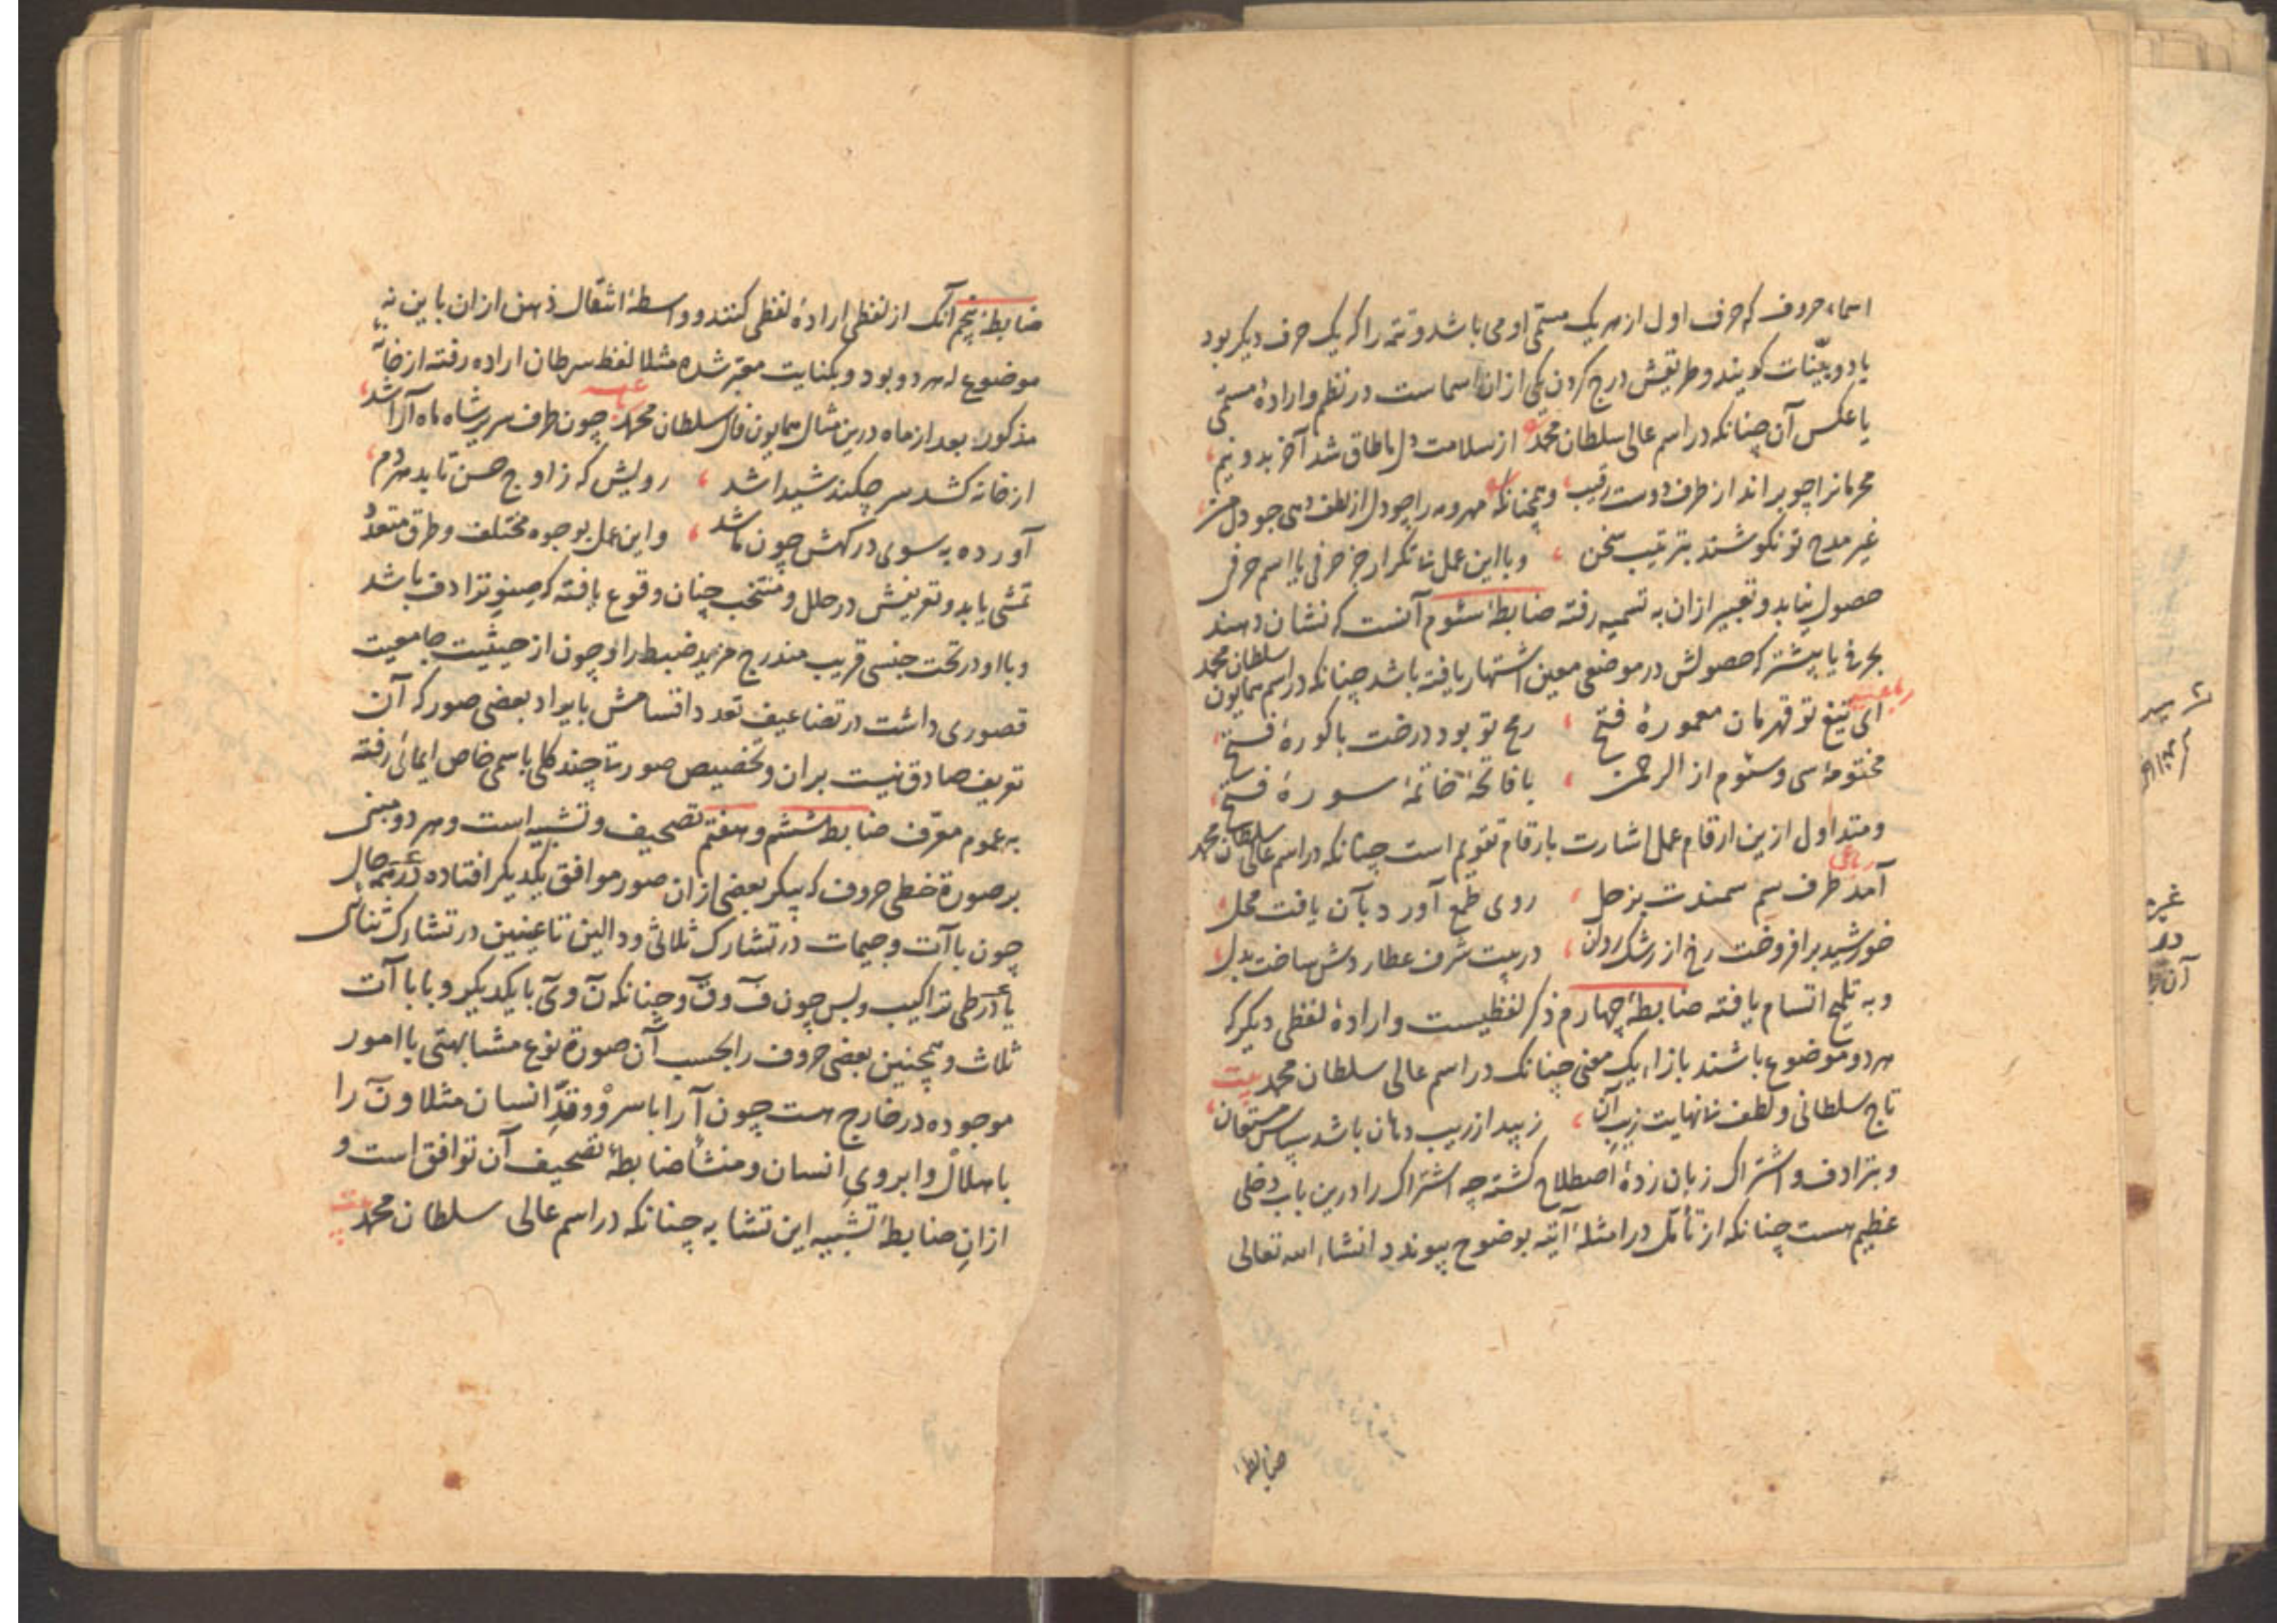 اسماء حروف که حرف اول از هر یک مسمّی او می باشد و تتمه را که یک حرف دیگر بود
یا دو بیّنات گویند و طریقش درج کردن یکی ازان اسماست در نظم و ارادهٔ مسمّی
یا عکس آن چنانکه در اسم عالی سلطان محمد از سلامت دل ما طاق شد آخر بدو نیم
محرمانرا چو براند از طرف دوست رقیب و همچنانکه مهر و مه را چو دل از لطف دهی جو دل
غیر مدح تو نکوشند بترتیب سخن و با این عمل تکرار جز حرفی یا اسم حرفی
حصول نیابد و تعبیر ازان به تسمیه رفته ضابطهٔ سئوم آنست که نشان دهند
بحرفی یا بیشتر که حصولش در موضعی معین اشتهار یافته باشد چنانکه در اسم همایون سلطان محمد
رباعیه
ای تیغ تو قهرمان معمورهٔ فتح رمح تو بود درخت باکورهٔ فتح
مختومهٔ سی و سئوم از الرحمن با فاتحهٔ خاتمهٔ سورهٔ فتح
و متداول ازین ارقام عمل اشارت بارقام تقویم است چنانکه در اسم عالی سلطان محمد
رباعی
آمد طرف سم سمندت بزحل روی طمع آورد بآن یافت محل
خورشید برافروخت رخ از رشک روان در بیت شرف عطاردش ساخت بدل
و به تلمیح اتسام یافته ضابطهٔ چهارم ذکر لفظیست و ارادهٔ لفظی دیگر که
هر دو موضوع باشند بازاء یک معنی چنانک در اسم عالی سلطان محمد بیت
تاج سلطانی و لطف نانهایت زیب آن زیبد از زیب دهان باشد سپاس مستعان
و بترادف و اشتراک زبان زدهٔ اصطلاح گشته چه اشتراک را درین باب دخلی
عظیم هست چنانکه از تأمل در امثلهٔ آتیه بوضوح پیوندد انشاء الله تعالی
ضابطهٔ
ضابطهٔ پنجم آنک از لفظی ارادهٔ لفظی کنند و واسطهٔ انتقال ذهن ازان باین نه
موضوع له هر دو بود و بکنایت معبّر شده مثلا لفظ سرطان اراده رفته از خانهٔ
مذکور بعد از ماه درین مثال همایون فال سلطان محمد چون طرف سریر شاه ماه آرا شد
از خانه کشد سر چکند شیدا شد رویش که ز اوج حسن تابد هر دم
آورده به سوی درگهش چون ما شد و این عمل بوجوه مختلف و طرق متعدد
تمشی یابد و تعریفش در حلل و منتخب چنان وقوع یافته که صنو ترادف باشد
و با او در تحت جنسی قریب مندرج مزید ضبط را و چون از حیثیت جامعیت
قصوری داشت در تضاعیف تعدد اقسامش بایراد بعضی صور که آن
تعریف صادق نیست بران و تخصیص صورتا چند کلی باسمی خاص ایمائی رفته
به عموم معرّف ضابطهٔ ششم و هفتم تصحیف و تشبیه است و هر دو مبنی
بر صورة خطی حروف که پیکر بعضی ازان صور موافق یکدیگر افتاده در همه حال
چون باآت و جیمات در تشارک ثلاثی و دالین تا عینین در تشارک ثنائی
یا در طی تراکیب و بس چون ف و ق و چنانکه ن و ی با یکدیگر و با باآت
ثلاث و همچنین بعضی حروف را بحسب آن صورة نوع مشابهتی با امور
موجوده در خارج هست چون آ را با سرو و قدّ انسان مثلا و ن را
با هلال و ابروی انسان و منشأ ضابطهٔ تصحیف آن توافق است و
ازانِ ضابطهٔ تشبیه این تشابه چنانکه در اسم عالی سلطان محمد بیت